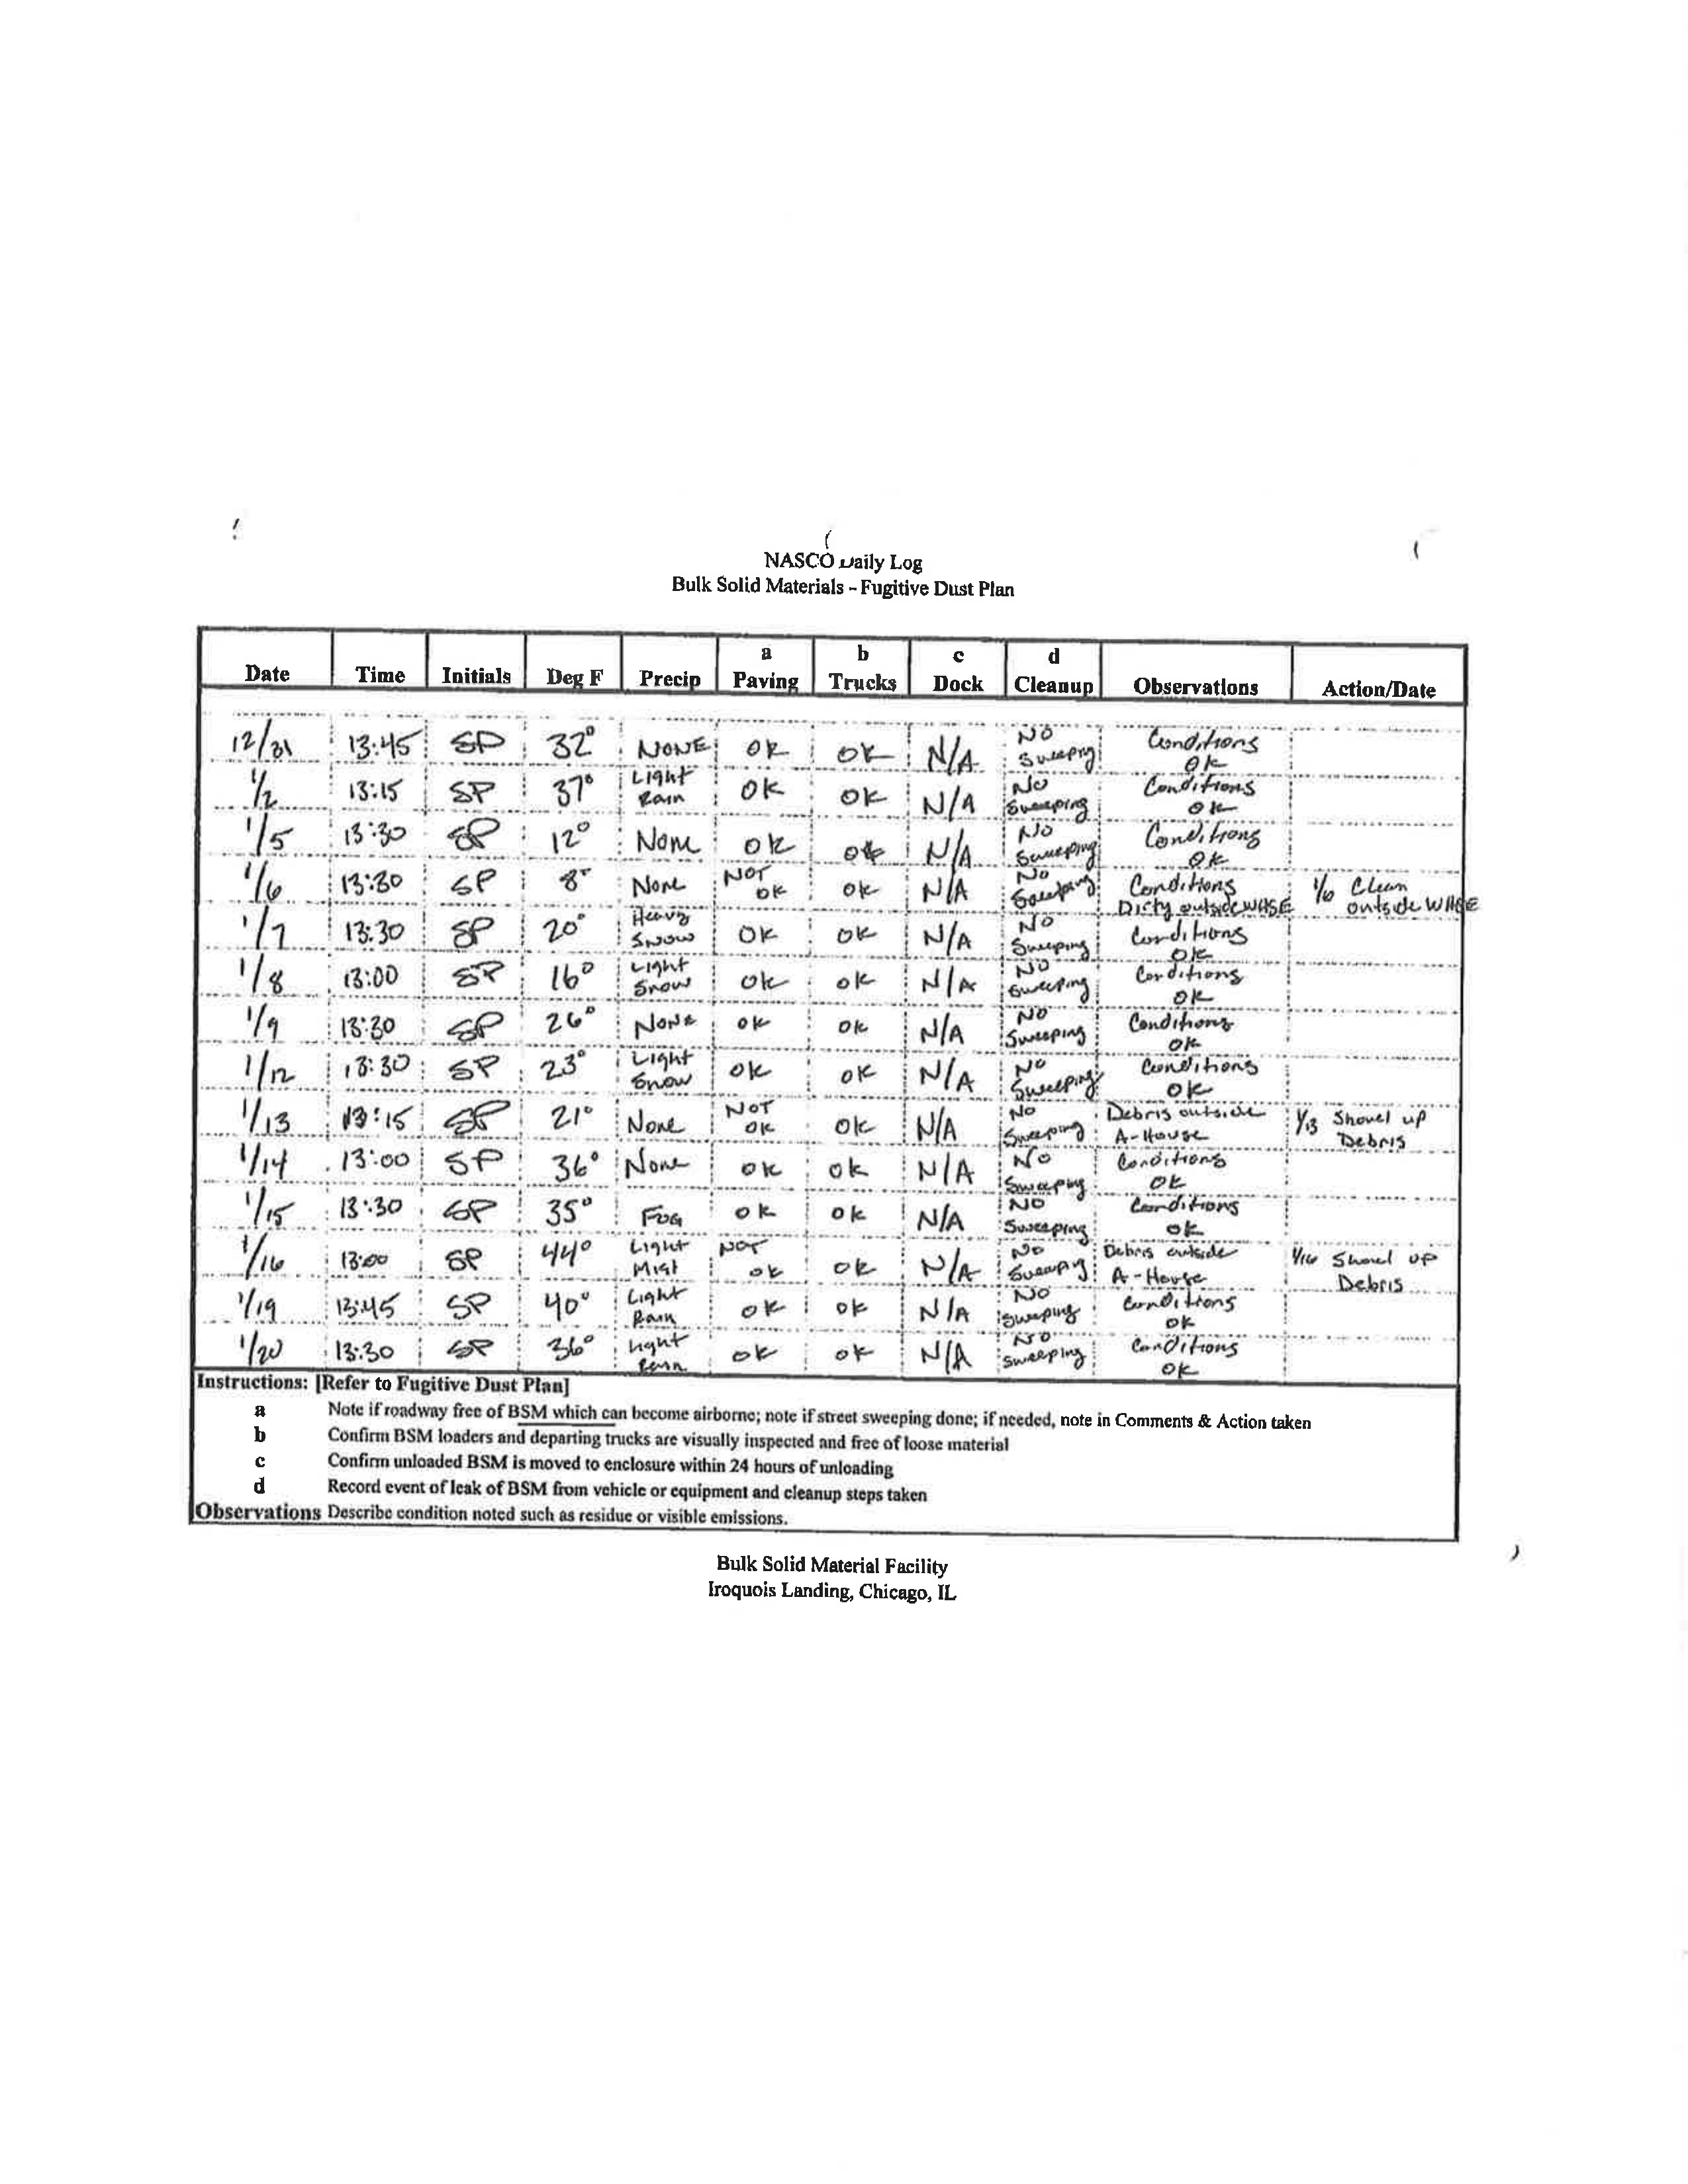 NASCO Daily Log
Bulk Solid Materials - Fugitive Dust Plan
a b c d
Date Time Initials Deg F Precip Paving Trucks Dock Cleanup Observations Action/Date
12/31 13:45 SP 32° NONE OK OK N/A No Sweeping Conditions OK
1/2 13:15 SP 37° Light Rain OK OK N/A No Sweeping Conditions OK
1/5 13:30 SP 12° None OK OK N/A No Sweeping Conditions OK
1/6 13:30 SP 8° None NOT OK OK N/A No Sweeping Conditions Dirty outside WHSE 1/6 Clean outside WHSE
1/7 13:30 SP 20° Heavy Snow OK OK N/A No Sweeping Conditions OK
1/8 13:00 SP 16° Light Snow OK OK N/A No Sweeping Conditions OK
1/9 13:30 SP 26° None OK OK N/A No Sweeping Conditions OK
1/12 13:30 SP 23° Light Snow OK OK N/A No Sweeping Conditions OK
1/13 13:15 SP 21° None NOT OK OK N/A No Sweeping Debris outside A-House 1/13 Shovel up Debris
1/14 13:00 SP 36° None OK OK N/A No Sweeping Conditions OK
1/15 13:30 SP 35° Fog OK OK N/A No Sweeping Conditions OK
1/16 13:00 SP 44° Light Mist NOT OK OK N/A No Sweeping Debris outside A-House 1/16 Shovel up Debris
1/19 13:45 SP 40° Light Rain OK OK N/A No Sweeping Conditions OK
1/20 13:30 SP 36° Light Rain OK OK N/A No Sweeping Conditions OK
Instructions: [Refer to Fugitive Dust Plan]
a Note if roadway free of BSM which can become airborne; note if street sweeping done; if needed, note in Comments & Action taken
b Confirm BSM loaders and departing trucks are visually inspected and free of loose material
c Confirm unloaded BSM is moved to enclosure within 24 hours of unloading
d Record event of leak of BSM from vehicle or equipment and cleanup steps taken
Observations Describe condition noted such as residue or visible emissions.
Bulk Solid Material Facility
Iroquois Landing, Chicago, IL